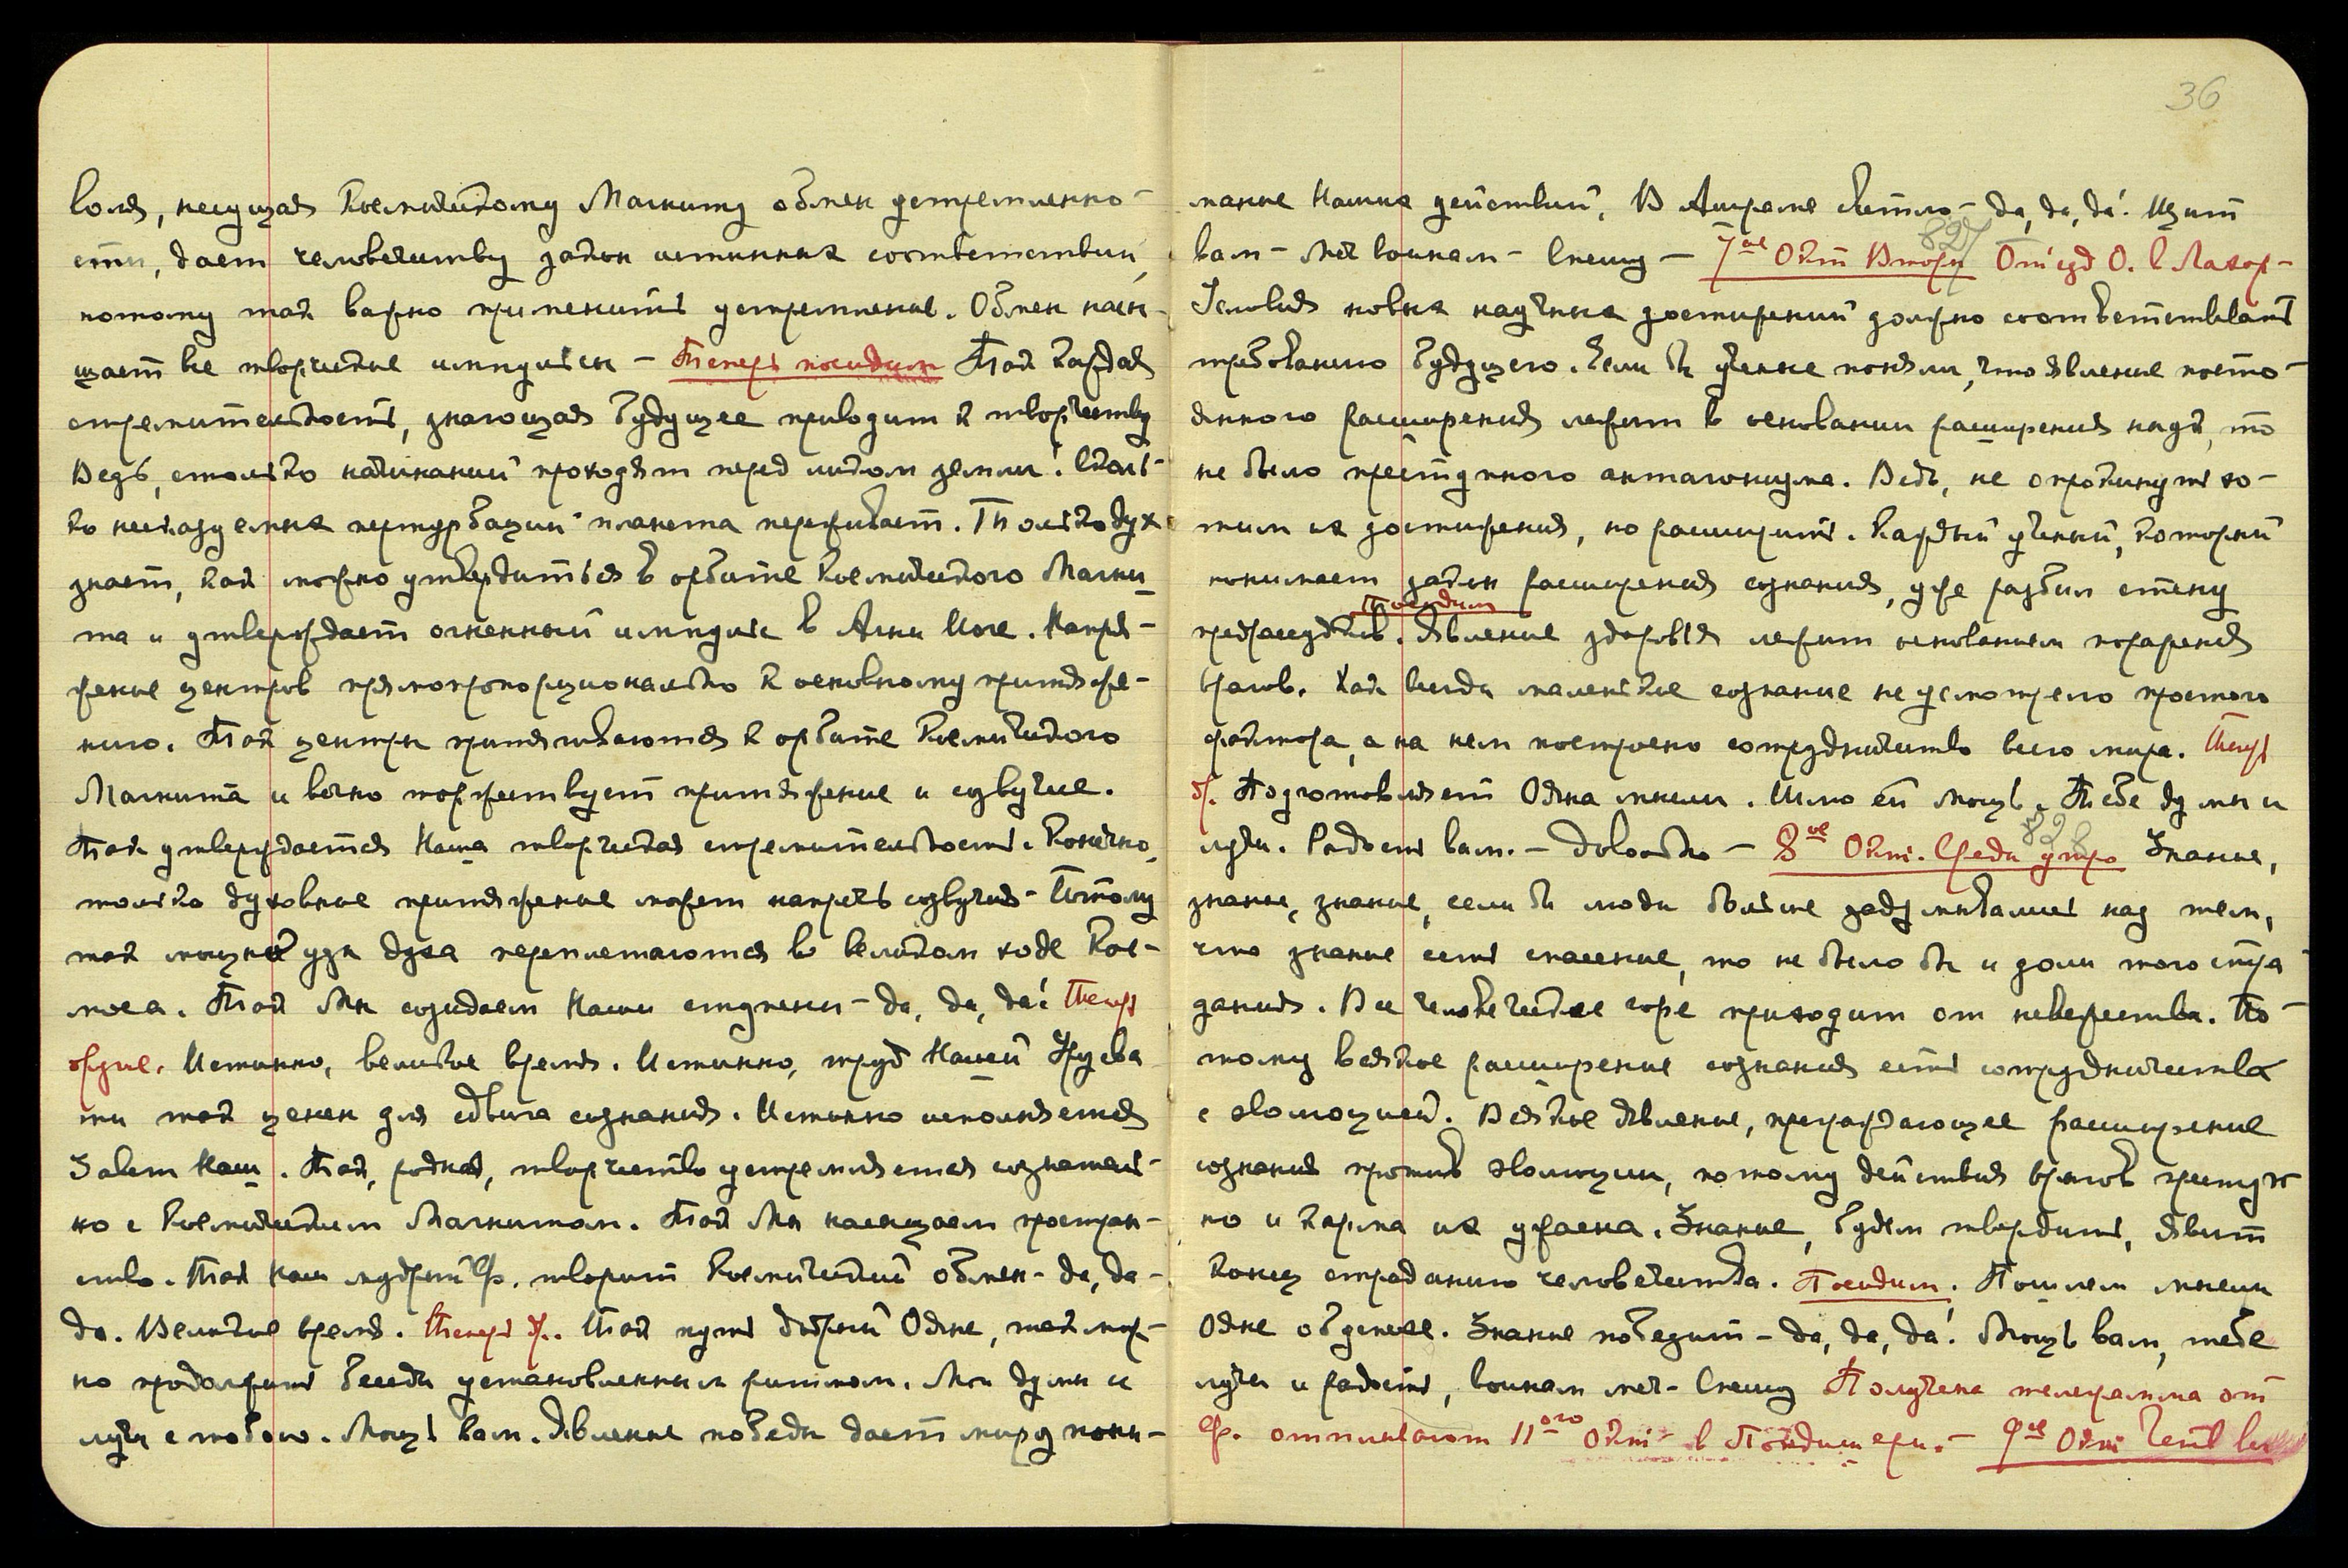 воля, несущая Космическому Магниту обмен устремленно-
сти, дает человечеству закон истинных соответствий,
потому так важно применить устремление. Обмен насы-
щает все творческие импульсы – Теперь посидим Так каждая
стремительность, знающая будущее приводит к творчеству
Ведь, столько начинаний проходят перед ликом земли! Сколь-
ко несказуемых пертурбаций планета переживает. Только дух
знает, как можно утвердиться в орбите Космического Магни-
та и утверждает огненный импульс в Агни Йоге. Напря-
жение центров прямопропорционально к основному притяже-
нию. Так центры притягиваются к орбите Космического
Магнита и вечно торжествует притяжение и созвучие.
Так утверждается Наша творческая стремительность. Конечно,
только духовное притяжение может напрячь созвучия – Потому
так мощные узы духа переплетаются в великом ходе Кос-
моса. Так Мы созидаем Наши ступени – да, да, да! Теперь
другие. Истинно, великое время. Истинно, труд Нашей Урусва
ти так ценен для сдвига сознания. Истинно исполняется
Завет Наш. Так, родная, творчество устремляется сознатель-
но с Космическим Магнитом. Так Мы насыщаем простран-
ство. Так Наш мудрый Ф. творит Космический обмен – да, да-
да. Великое время. Теперь д. Так путь добрый Ояне, так мож-
но продолжить беседы установленным ритмом. Мои думы и
лучи с тобою. Мощь вам. Явление победы даст миру пони-
36
мание Наших действий. В Ашраме светло – да, да, да! Щит
вам – меч воинам – Спешу – 7ое Окт Вторн 827 Отъезд О. в Лахор –
Условия новых научных достижений должно соответствовать
требованию будущего. Если бы ученые поняли, что явление посто-
янного расширения лежит в основании расширения наук, то
не было преступного антагонизма. Ведь, не опрокинуть хо-
тим их достижения, но расширить. Каждый ученый, который
понимает закон расширения сознания, уже разбил стену
предрассудков. Посидим Явление здоровья лежит основанием поражения
врагов. Как всегда маленькое сознание не усмотрело простого
фактора, а на нем построено сотрудничество всего мира. Теперь
д. Подготовляет Ояна мысли. Шлю ей мощь. Тебе думы и
лучи. Радость вам. – Довольно – 8ое Окт. Среда утро 828 Знание,
знание, знание, если бы люди больше задумывались над тем,
что знание есть спасение, то не было бы и доли того стра
дания. Все человеческое горе приходит от невежества. По-
тому всякое расширение сознания есть сотрудничество
с эволюцией. Всякое явление, преграждающее расширение
сознания против эволюции, потому действия врагов преступ
но и карма их ужасна. Знание, будем твердить, явит
конец страданию человечества. Посидим. Пошлем мысли
Ояне об успехе. Знание победит – да, да, да! Мощь вам, тебе
лучи и радость, воинам меч – Спешу Получена телеграмма от
Ф. отплывают 11ого Окт – в Пондишери. – 9ое Окт Четв